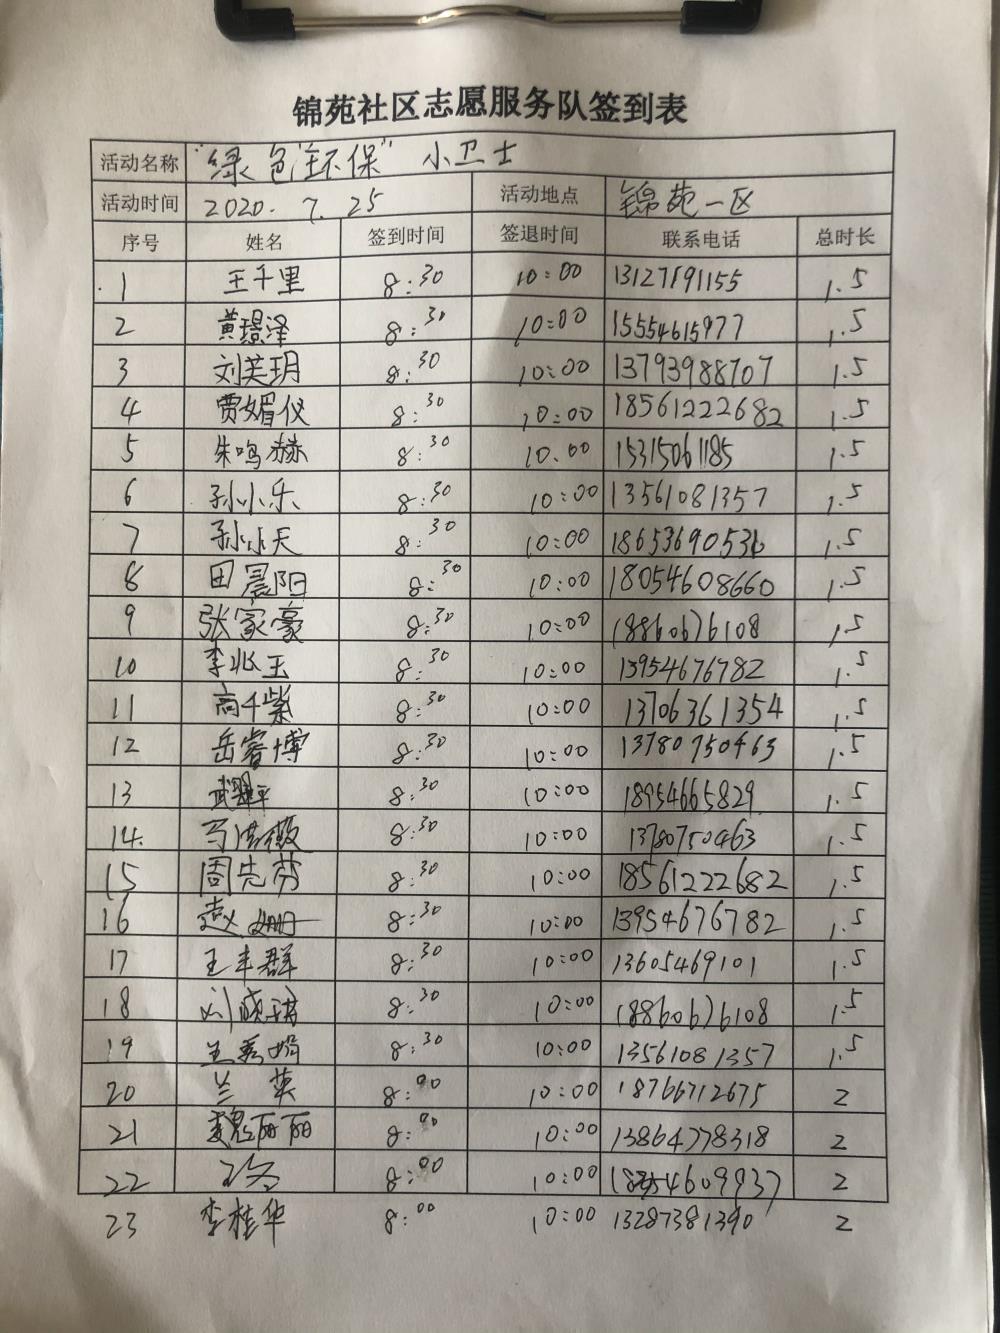 锦苑社区志愿服务队签到表
活动名称 "绿色环保"小卫士
活动时间 2020.7.25 活动地点 锦苑一区
序号 姓名 签到时间 签退时间 联系电话 总时长
1 王千里 8:30 10:00 13127191155 1.5
2 黄璟泽 8:30 10:00 15554615977 1.5
3 刘芙玥 8:30 10:00 13793988707 1.5
4 贾媚仪 8:30 10:00 18561222682 1.5
5 朱鸣赫 8:30 10.00 15315061185 1.5
6 孙小乐 8:30 10:00 13561081357 1.5
7 孙小天 8:30 10:00 18653690536 1.5
8 田晨阳 8:30 10:00 18054608660 1.5
9 张家豪 8:30 10:00 18860676108 1.5
10 李兆玉 8:30 10:00 13954676782 1.5
11 高千紫 8:30 10:00 13706361354 1.5
12 岳睿博 8:30 10:00 13780750463 1.5
13 8:30 10:00 18954665829 1.5
14. 8:30 10:00 13780750463 1.5
15 周先芬 8:30 10:00 18561222682 1.5
16 赵姗 8:30 10:00 13954676782 1.5
17 王丰群 8:30 10:00 13605469101 1.5
18 刘晓琪 8:30 10:00 18860676108 1.5
19 8:30 10:00 13561081357 1.5
20 兰英 8:00 10:00 18766712675 2
21 魏丽丽 8:00 10:00 13864778318 2
22 8:00 10:00 2
23 李桂华 8:00 10:00 13287381390 2